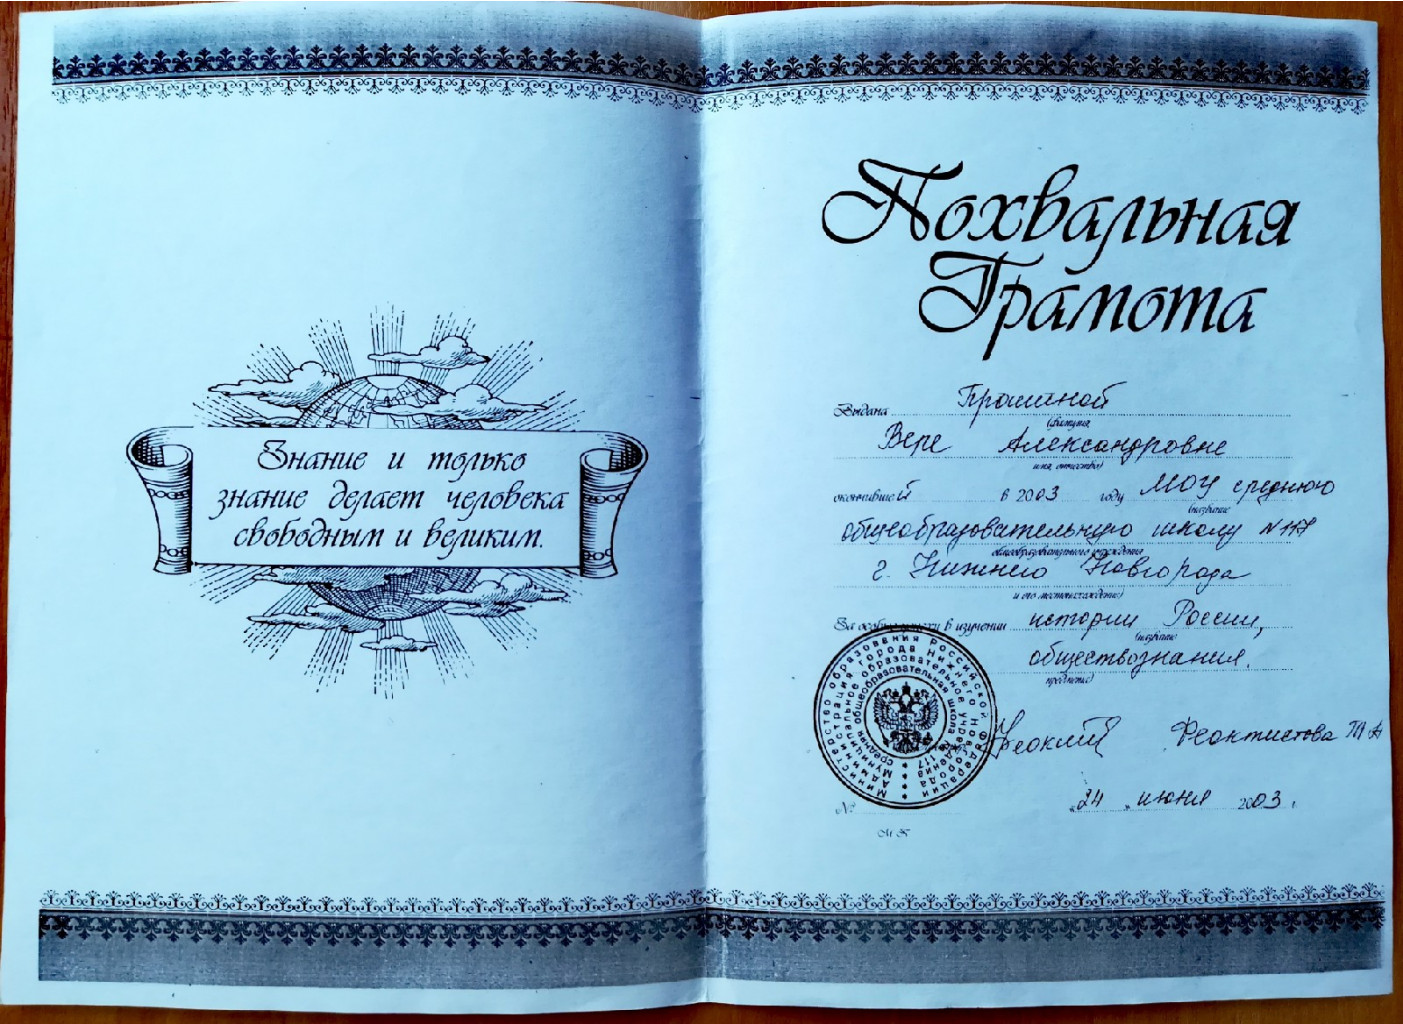 Знание и только
знание делает человека
свободным и великим.
Похвальная
Грамота
Выдана Прошиной
(фамилия
Вере Александровне
имя, отчество)
окончившей в 2003 году МОУ среднюю
(название
общеобразовательную школу №117
общеобразовательного учреждения
г. Нижнего Новгорода
и его местонахождение)
За особые успехи в изучении истории России,
(название
обществознания.
предмета)
Министерство образования Российской Федерации
Администрация города Нижнего Новгорода
Муниципальное образовательное учреждение
средняя общеобразовательная школа 117
Феоктистова
№
"24" июня 2003 г.
М.П.